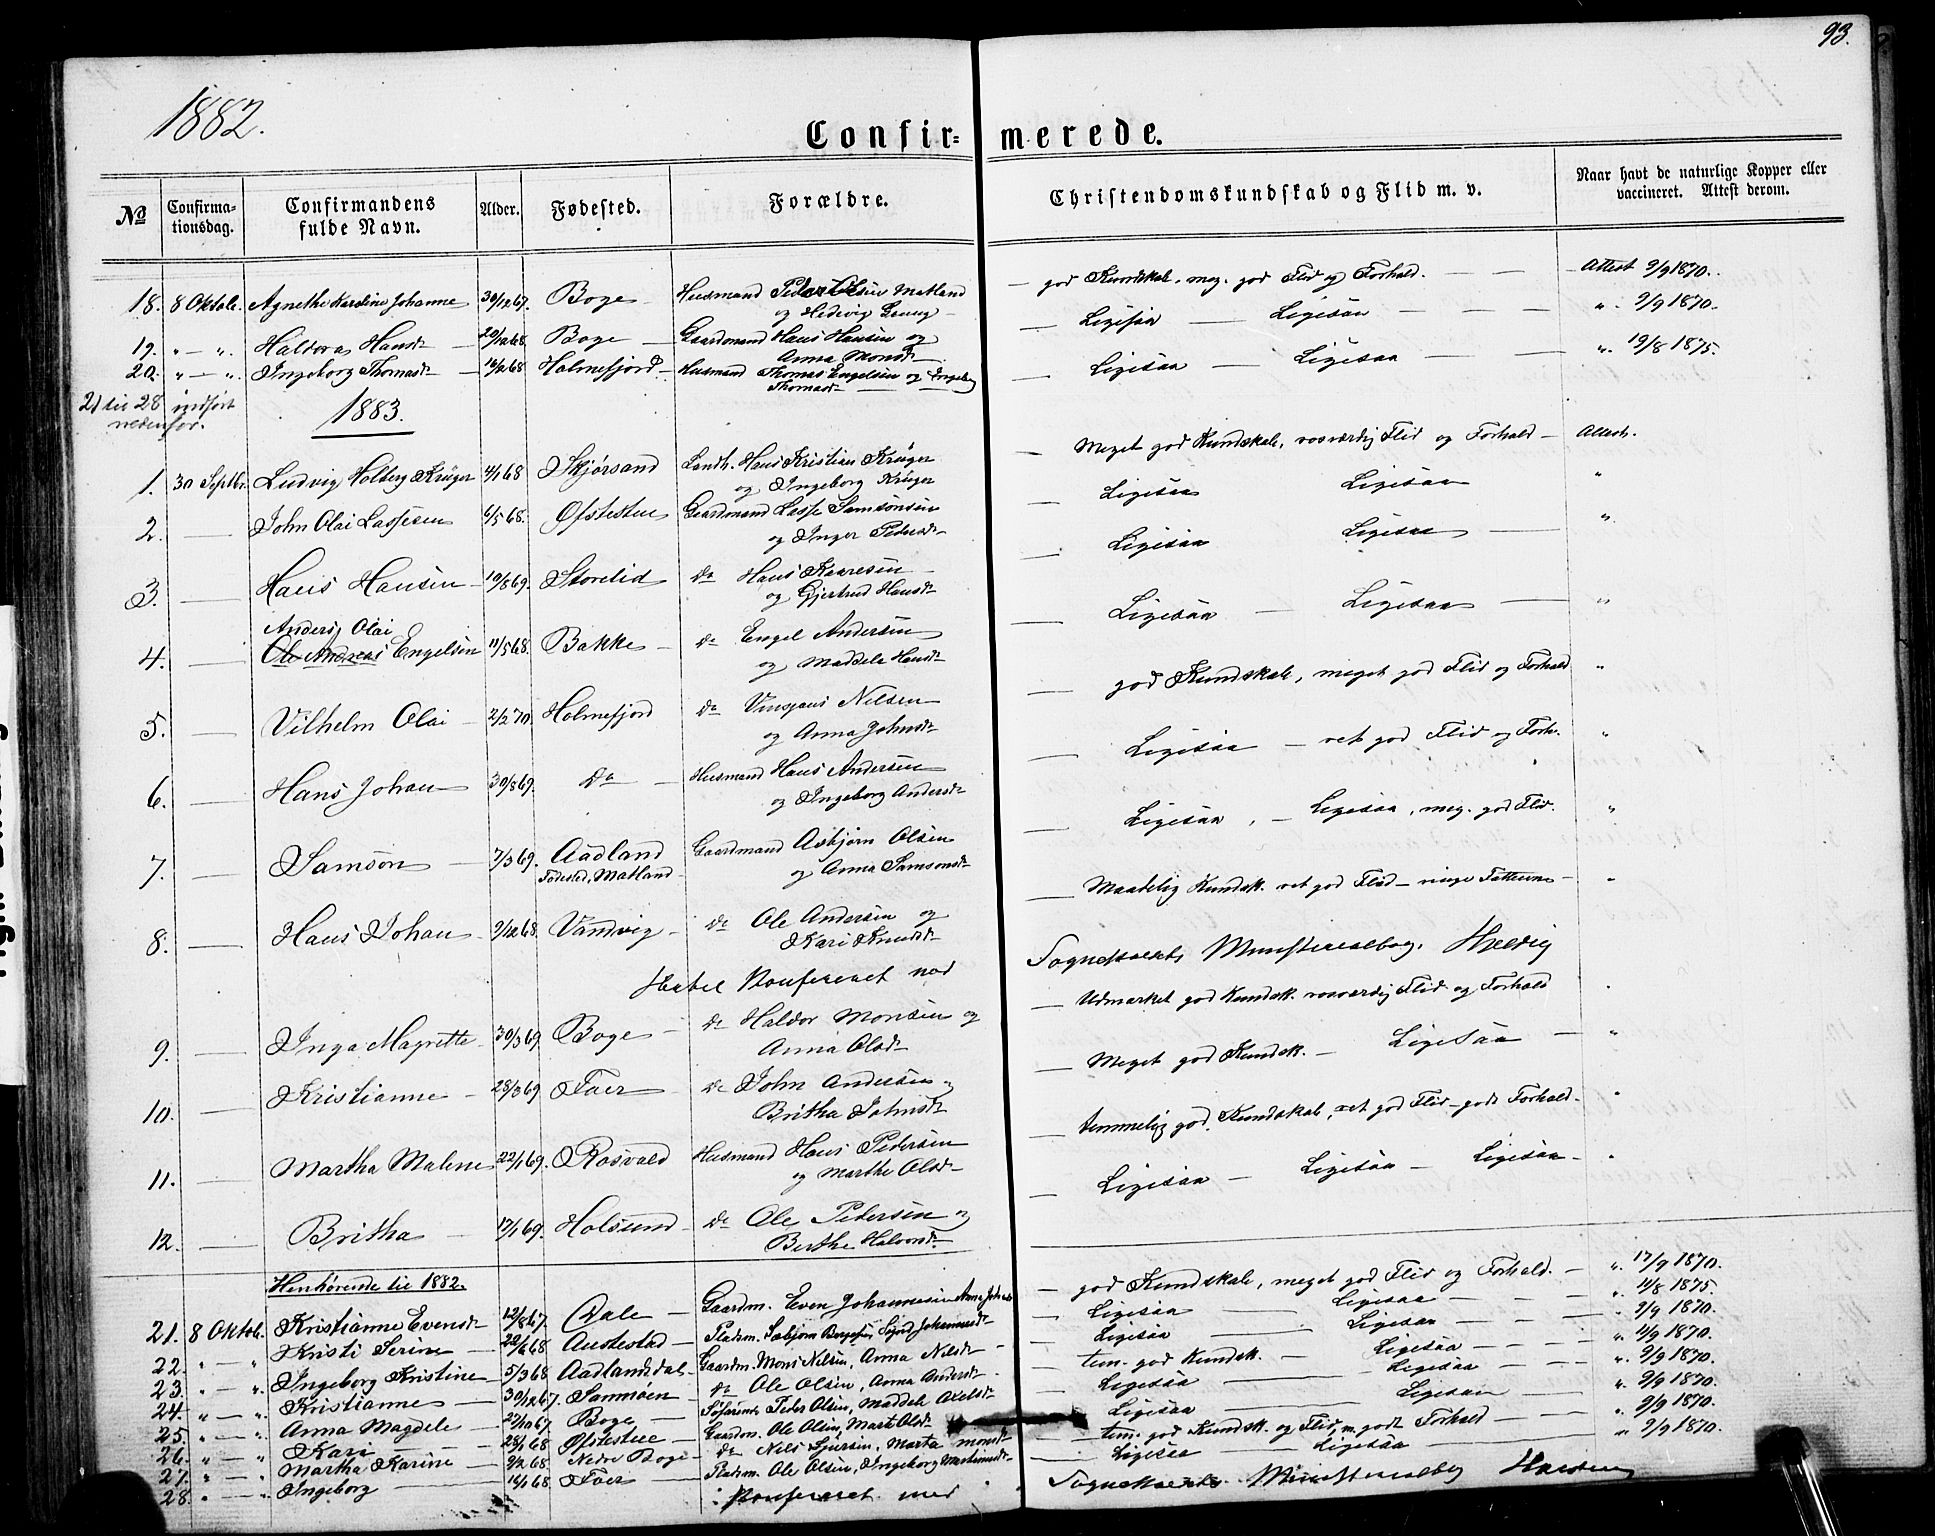 93.
1882.
Confir= merede.
No
Confirma-
tionsdag.
Confirmandens
fulde Navn.
Alder.
Fødested.
Forældre.
Christendomskundskab og Flid m. v.
Naar havt de naturlige Kopper eller
vaccineret. Attest derom.
18. 8 Oktob. Agnethe Karoline Johanne 30/12 67. Boge Husmand Peder Olsen Matland god Kundskab, meg. god Flid og Forhold. Attest 9/9 1870.
og Hedevig
19. " — " Haldora Hansdr 20/10 68. Boge Gaardmand Hans Hansen og Ligesaa Ligesaa " 9/9 1870.
Anna Monsdr
20. " — " Ingeborg Thomasdr 16/2 68 Holmefjord Husmand Thomas Engelsen og Ingeborg Ligesaa Ligesaa " 19/8 1875.
Thomasdr
21 til 28 indført
nedenfor.
1883.
1. 30 Septbr. Ludvig Holberg Krüger 4/1 68 Skjørsand Landh. Hans Kristian Krüger Meget god Kundskab, rosværdig Flid og Forhold Attest.
og Ingeborg Krüger
2. John Olai Lassesen 6/5 68. Øfstestue Gaardmand Lasse Samsonsen Ligesaa Ligesaa "
og Inger Pedersdr
3. Hans Hansen 19/8 69. Storelid Do Hans Kaaresen Ligesaa Ligesaa "
og Gjertrud Hansdr
Anders Olai
4. Ole Andreas Engelsen 11/5 68. Bakke Do Engel Andersen Ligesaa Ligesaa "
og Maddela Hansdr
5. Vilhelm Olai 2/2 70. Holmefjord Do Vinsjans Nilsen god Kundskab, meget god Flid og Forhold "
og Anna Johnsdr
6. Hans Johan 30/8 69. Do Husmand Hans Andersen Ligesaa — ret god Flid og Forh. "
og Ingeborg Andersdr
7. Samson 7/3 69. Aadland Gaardmand Asbjørn Olsen Ligesaa, — Ligesaa, meg. god Flid. "
Fødested, Matland og Anna Samsonsdr
8. Hans Johan 9/12 68. Vandvig Do Ole Andersen og Maadelig Kundsk. ret god Flid — ringe Fatteevne "
Kari Knudsdr
Hertil Konfereret med Sogneprestens Ministerialbog.
9. Inga Magrette 30/3 69 Boge Do Haldor Monsen og Udmærket god Kundsk. rosværdig Flid og Forhold "
Anna Olsdr
10. Kristianne 28/3 69 Foer Do John Andersen og Meget god Kundsk. — Ligesaa "
Britha Johnsdr
11. Martha Malene 22/1 69. Rosvold Husmand Hans Pedersen temmelig god Kundskab, ret god Flid — godt Forhold "
og Marthe Olsdr
12. Britha 17/1 69. Holsund Do Ole Pedersen og Ligesaa — Ligesaa — Ligesaa "
Berthe Halvorsdr
Henhørende til 1882.
21. 8 Oktob. Kristianne Evensdr 12/8 67. Dale Gaardm. Even Johannesen Anna god Kundskab, meget god Flid og Forhold. " 17/9 1870.
22. " — " Kristi Serine 22/6 68 Austestad Pladsm. Sjurd Johannesdr Ligesaa Ligesaa " 14/8 1875.
23. " — " Ingeborg Kristine 5/3 68 Aadlandsdal Gaardm. Mons Nilsen, Anna Nilsdr Ligesaa Ligesaa " 9/9 1870.
24. " — " Kristianne 30/12 67. Sanmoen Do Ole Olsen, Anna Andersdr tem. god Kundsk. Ligesaa " 4/9 1870.
25. " — " Anna Magdele 27/10 67 Boge Peder Olsen, Maddele Ligesaa Ligesaa " 9/9 1870.
26. " — " Kari 28/1 68 Øfstestue Gaardm. Ole Olsen, Mart. Olsdr Ligesaa Ligesaa " 9/9 1870.
27. " — " Martha Karine 9/2 68 Nedre Boge Do Nels Sjursen, Marta Monsdr tem. god Kundsk. og Flid, m. godt Forhold " 9/9 1870.
28. " — " Ingeborg 16/1 68 Foer Pladsm. Ole Olsen, Ingeborg Ligesaa Ligesaa " 9/9 1870.
Konfereret med Sogneprestens Ministerialbog